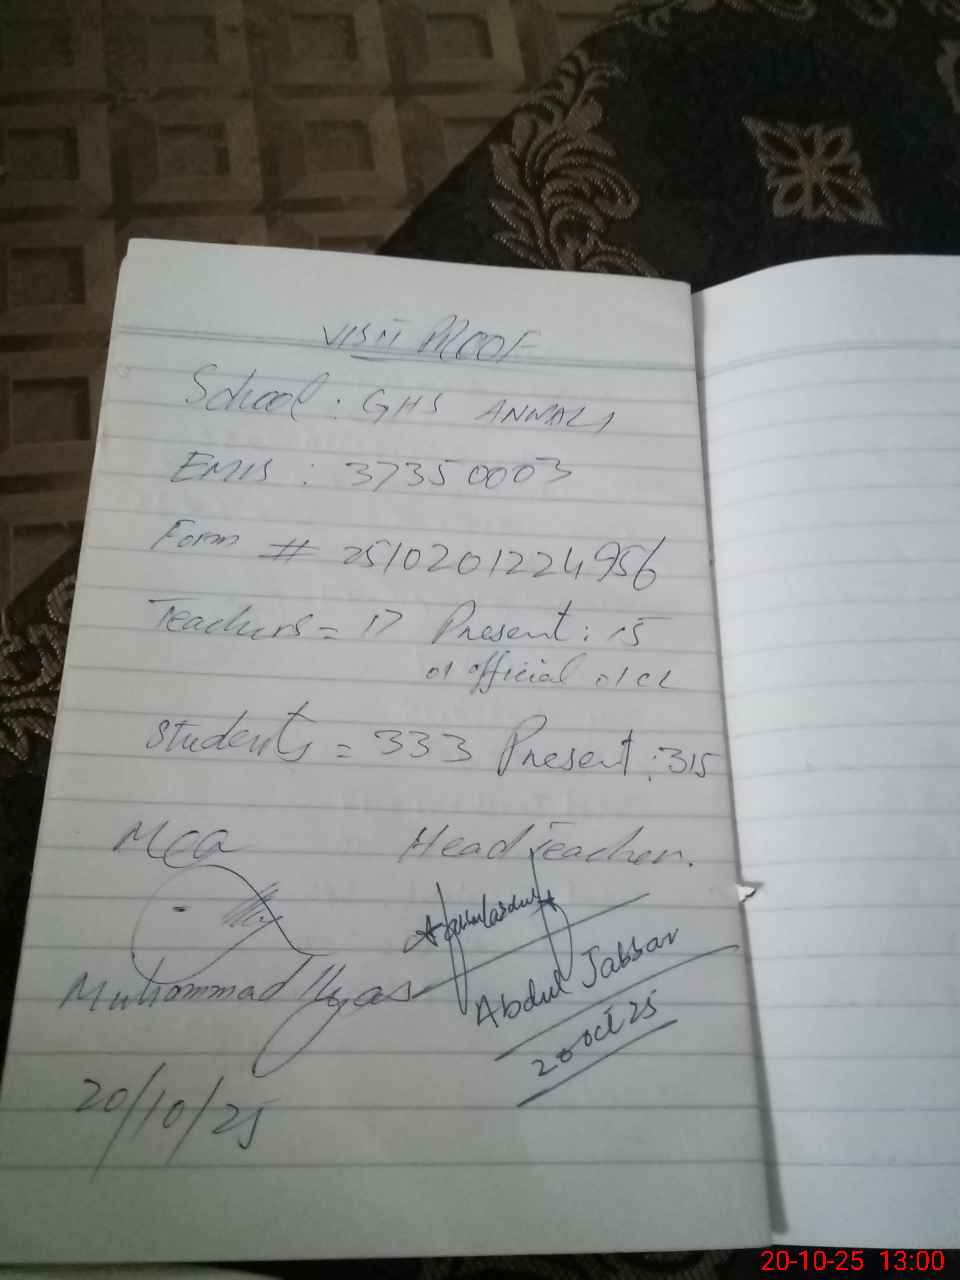 VISIT PROOF
School : GHS ANWALI
EMIS : 37350003
Form # 2510201224956
Teachers = 17 Present : 15
01 official 01 CL
Students = 333 Present : 315
MEA Head Teacher.
Muhammad Ilyas
Abdul Jabbar
20 Oct 25
20/10/25
20-10-25 13:00